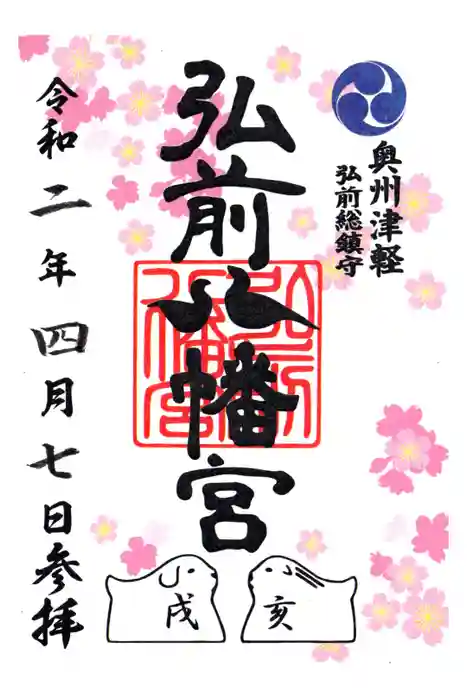 奥州津軽
弘前総鎮守
弘前八幡宮
弘前八幡宮
令和二年四月七日参拝
戌
亥